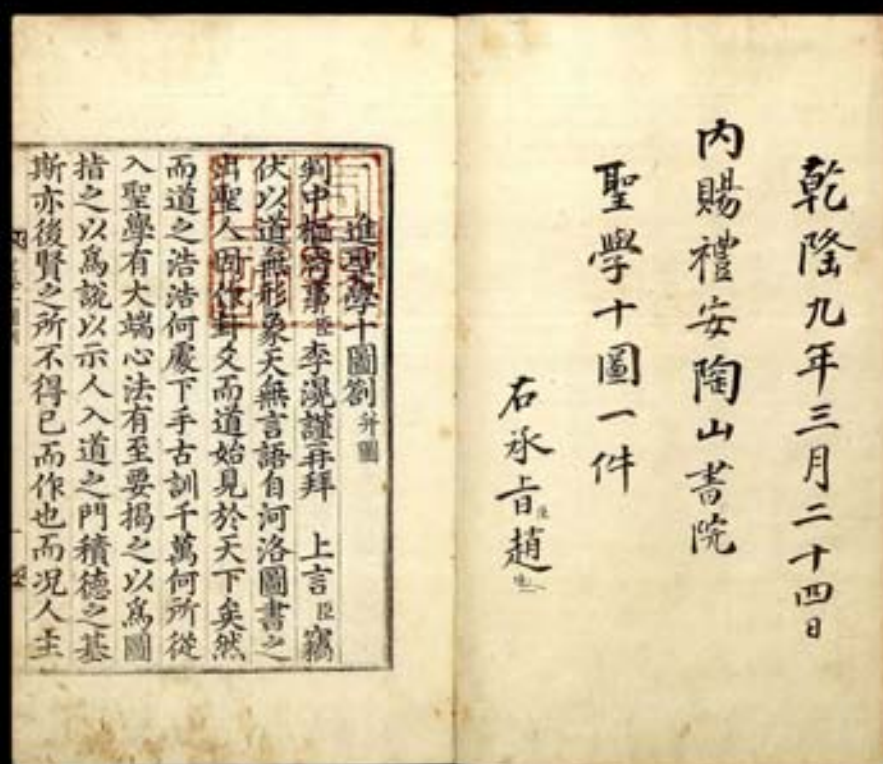 乾隆九年三月二十四日
內賜禮安陶山書院
聖學十圖一件
右承旨臣趙
進聖學十圖劄 并圖
判中樞府事臣李滉謹再拜 上言臣竊
伏以道無形象天無言語自河洛圖書之
出聖人因作卦爻而道始見於天下矣然
而道之浩浩何處下手古訓千萬何所從
入聖學有大端心法有至要揭之以爲圖
指之以爲說以示人入道之門積德之基
斯亦後賢之所不得已而作也而况人主